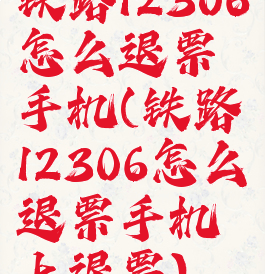 铁路12306
怎么退票
手机(铁路
12306怎么
退票手机
上退票)